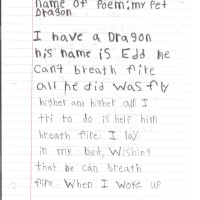 name of Poem: my Pet
Dragon
I have a Dragon
his name is Edd he
can't breath fire
all he did was fly
higher and higher all I
tri to do is help him
breath fire. I lay
in my bed, Wishing
that he can breath
fire. When I woke up